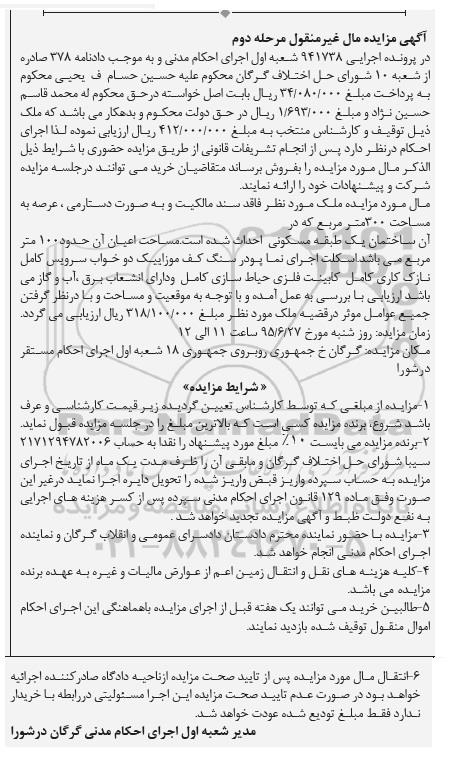 آگهی مزایده مال غیرمنقول مرحله دوم
در پرونده اجرایی ۹۴۱۷۳۸ شعبه اول اجرای احکام مدنی و به موجب دادنامه ۳۷۸ صادره
از شعبه ۱۰ شورای حل اختلاف گرگان محکوم علیه حسین حسام ف یحیی محکوم
به پرداخت مبلغ ۳۴/۰۸۰/۰۰۰ ریال بابت اصل خواسته درحق محکوم له محمد قاسم
حسین نژاد و مبلغ ۱/۶۹۳/۰۰۰ ریال در حق دولت محکوم و بدهکار می باشد که ملک
ذیل توقیف و کارشناس منتخب به مبلغ ۴۱۲/۰۰۰/۰۰۰ ریال ارزیابی نموده لذا اجرای
احکام درنظر دارد پس از انجام تشریفات قانونی از طریق مزایده حضوری با شرایط ذیل
الذکر مال مورد مزایده را بفروش برساند متقاضیان خرید می توانند درجلسه مزایده
شرکت و پیشنهادات خود را ارائه نمایند.
مال مورد مزایده ملک مورد نظر فاقد سند مالکیت و به صورت دستارمی ، عرصه به
مساحت ۳۰۰متر مربع که در
آن ساختمان یک طبقه مسکونی احداث شده است.مساحت اعیان آن حدود۱۰۰ متر
مربع می باشد.اسکلت اجرای نما پودر سنگ کف موزاییک دو خواب سرویس کامل
نازک کاری کامل کابینت فلزی حیاط سازی کامل ودارای انشعاب برق ،آب و گاز می
باشد ارزیابی با بررسی به عمل آمده و با توجه به موقعیت و مساحت و با درنظر گرفتن
جمیع عوامل موثر درقضیه ملک مورد نظر مبلغ ۳۱۸/۱۰۰/۰۰۰ ریال ارزیابی می گردد.
زمان مزایده: روز شنبه مورخ ۹۵/۶/۲۷ ساعت ۱۱ الی ۱۲
مکان مزایده: گرگان خ جمهوری روبروی جمهوری ۱۸ شعبه اول اجرای احکام مستقر
درشورا
«شرایط مزایده»
۱-مزایده از مبلغی که توسط کارشناس تعیین گردیده زیر قیمت کارشناسی و عرف
باشد شروع، برنده مزایده کسی است که بالاترین مبلغ را در جلسه مزایده قبول نماید.
۲-برنده مزایده می بایست ۱۰٪ مبلغ مورد پیشنهاد را نقدا به حساب ۲۱۷۱۲۹۴۷۸۲۰۰۶
سیبا شورای حل اختلاف گرگان و مابقی آن را ظرف مدت یک ماه از تاریخ اجرای
مزایده به حساب سپرده واریز قبض واریز شده را تحویل دایره اجرا نماید درغیر این
صورت وفق ماده ۱۲۹ قانون اجرای احکام مدنی سپرده پس از کسر هزینه های اجرایی
به نفع دولت ظبط و آگهی مزایده تجدید خواهد شد .
۳-مزایده با حضور نماینده محترم دادستان دادسرای عمومی و انقلاب گرگان و نماینده
اجرای احکام مدنی انجام خواهد شد.
۴-کلیه هزینه های نقل و انتقال زمین اعم از عوارض مالیات و غیره به عهده برنده
مزایده می باشد.
۵-طالبین خرید می توانند یک هفته قبل از اجرای مزایده باهماهنگی این اجرای احکام
اموال منقول توقیف شده بازدید نمایند.
۶-انتقال مال مورد مزایده پس از تایید صحت مزایده ازناحیه دادگاه صادرکننده اجرائیه
خواهد بود در صورت عدم تایید صحت مزایده این اجرا مسئولیتی دررابطه با خریدار
ندارد فقط مبلغ تودیع شده عودت خواهد شد.
مدیر شعبه اول اجرای احکام مدنی گرگان درشورا